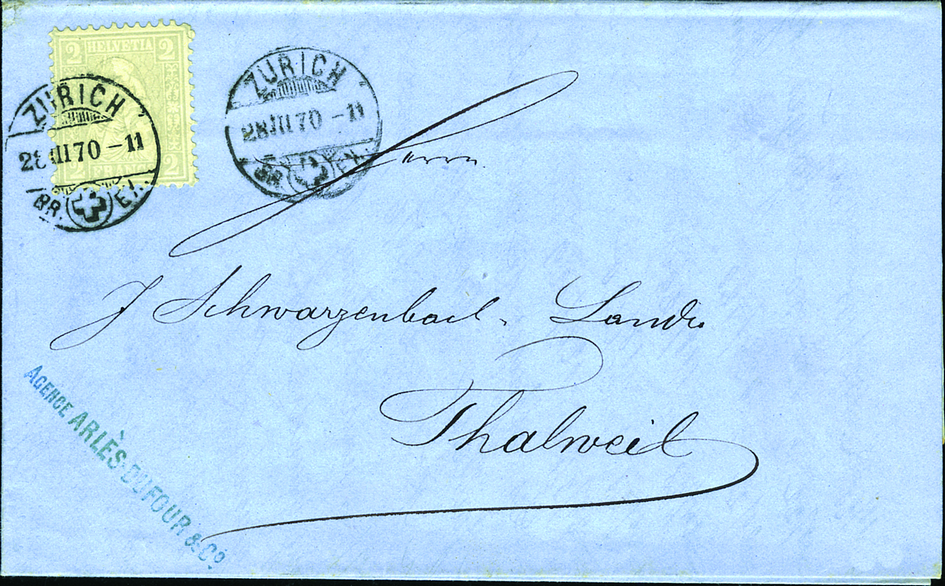 2 HELVETIA 2
2 2
ZÜRICH
28 III 70 – 11
BR. EX.
ZÜRICH
28 III 70 – 11
BR. EX.
Herrn
J Schwarzenbach-Landis
Thalweil
AGENCE ARLÈS-DUFOUR & Cº